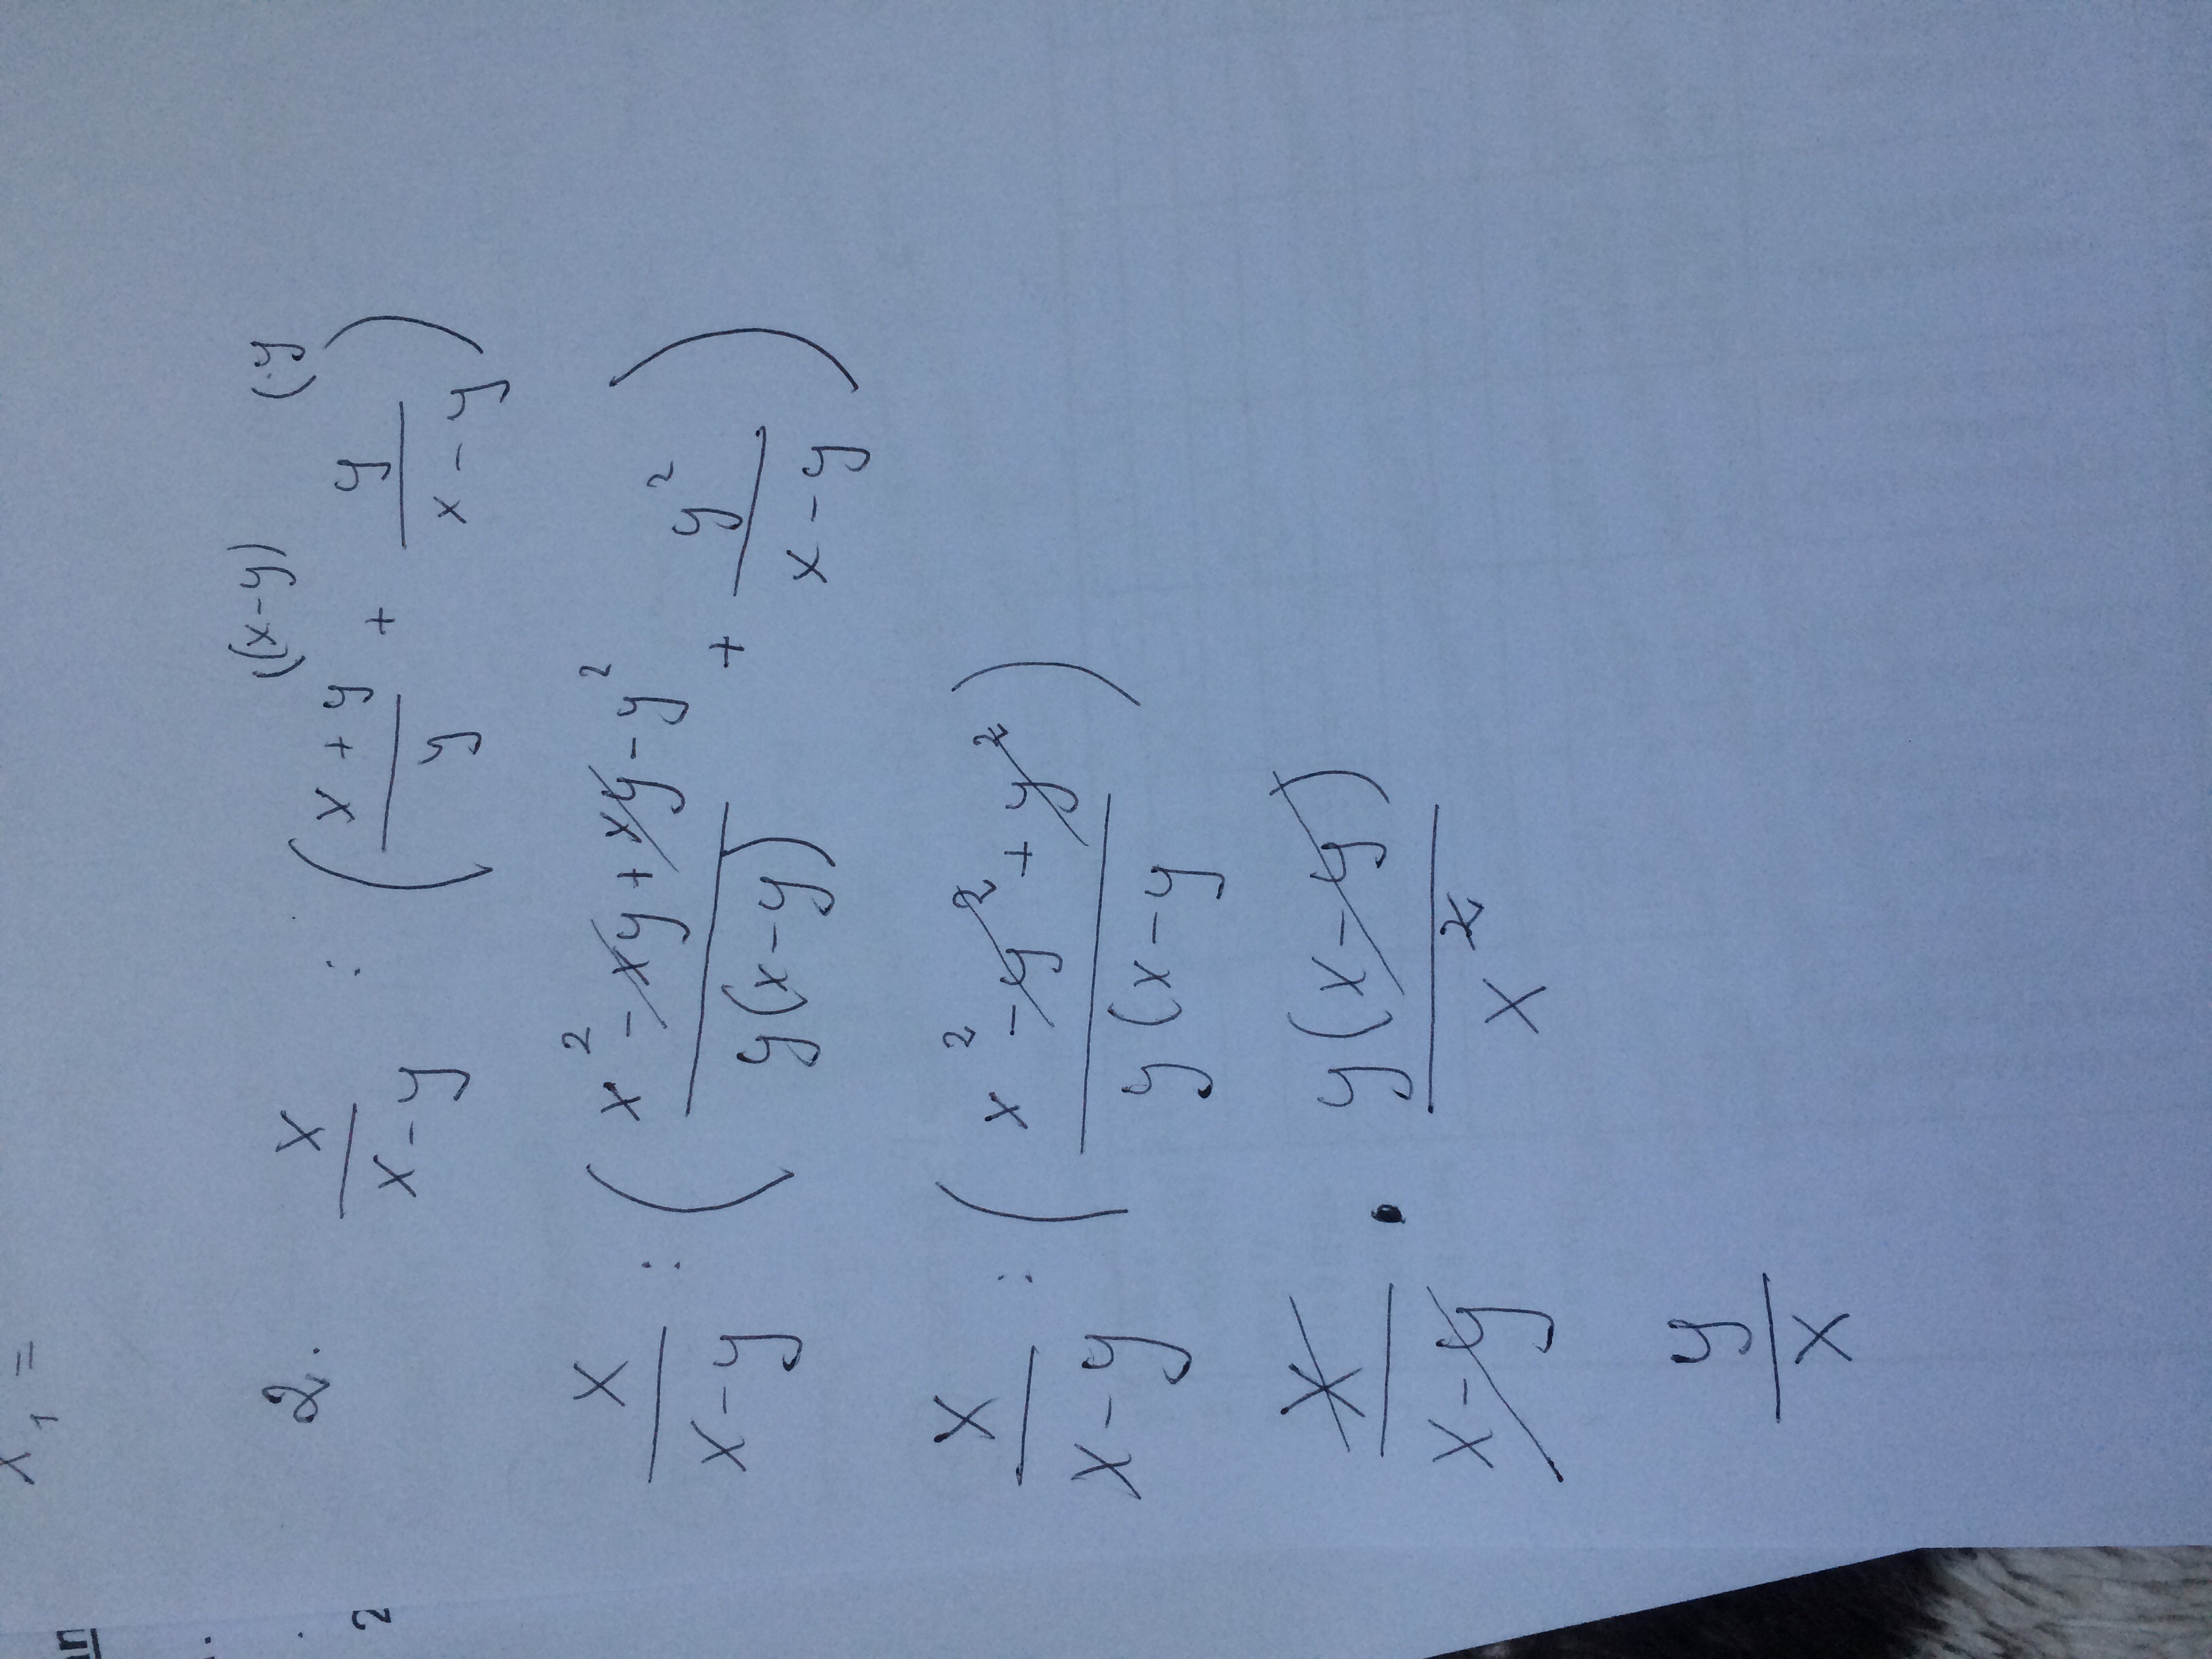 x₁ =
2. x/(x-y) : ((x+y)/y + y/(x-y)) ((x-y) (·y
x/(x-y) : ((x² - xy + xy - y²)/(y(x-y)) + y²/(x-y))
x/(x-y) : ((x² - y² + y²)/(y(x-y))
x/(x-y) · y(x-y)/x²
y/x
2